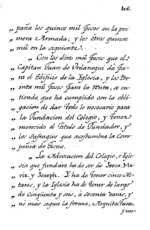 paña los quince mil Pesos en la pri
„ mera Armada; y los otros quince
„ mil en la siguiente.
„ Con los diez mil Pesos que el
„ Capitan Juan de Urdanegui da para
„ el Edificio de la Iglesia, y los trein
„ ta mil Pesos para la Renta, se en
„ tiende, que ha cumplido con la obli
„ gacion de dar todo lo necesario para
„ la Fundacion del Colegio, y tener
„ merecido el Titulo de Fundador, y
„ los Sufragios que acostumbra la Com
„ pañia de Jesus.
„ La Advocacion del Colegio, è Igle
„ sia que fundare ha de ser de Jesus, Ma
„ ria, y Joseph. Y ha de tener cinco Al
„ tares, y la Iglesia ha de tener de largo
„ de cinquenta y seis, à sesenta Varas, y
„ mas segun la forma, Arquitectura,